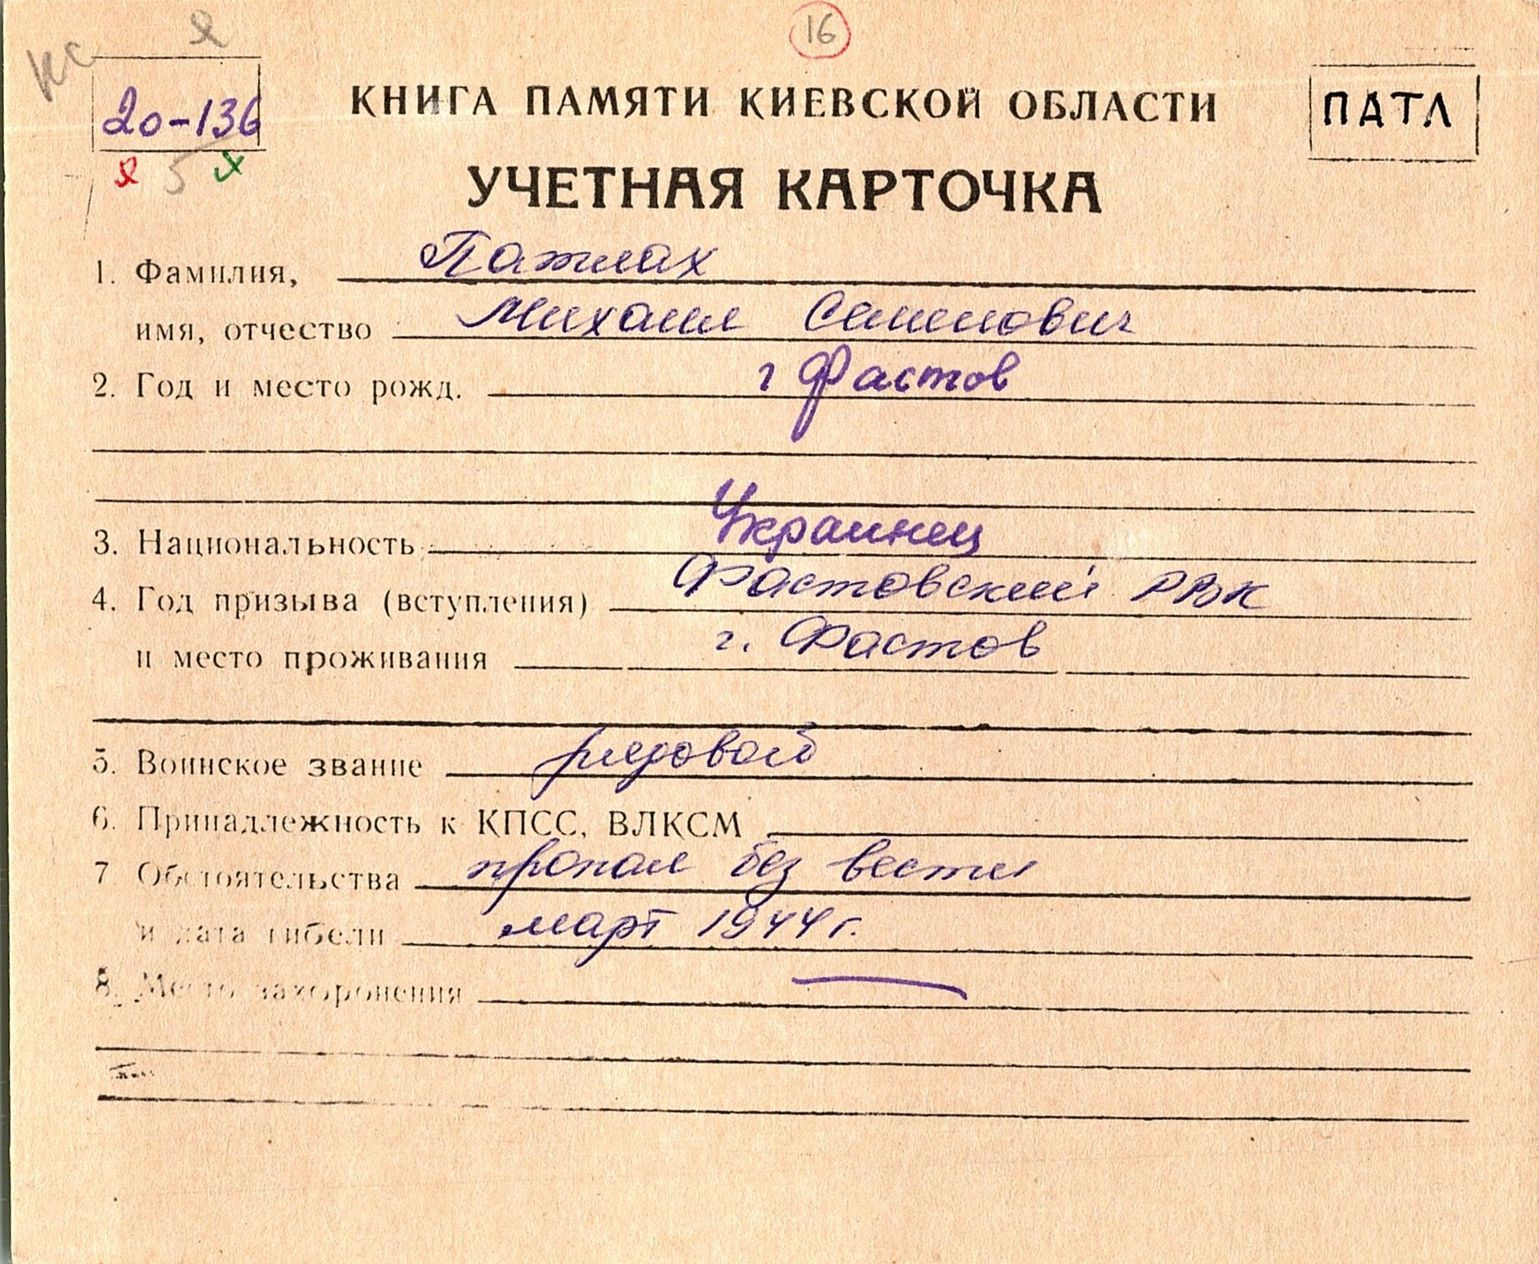 КС
я
16
20-136
КНИГА ПАМЯТИ КИЕВСКОЙ ОБЛАСТИ
ПАТЛ
5
УЧЕТНАЯ КАРТОЧКА
1. Фамилия, Патлах
имя, отчество Михаил Семенович
2. Год и место рожд. г Фастов
3. Национальность Украинец
4. Год призыва (вступления) Фастовский РВК
и место проживания г. Фастов
5. Воинское звание рядовой
6. Принадлежность к КПСС, ВЛКСМ
7 Обстоятельства пропал без вести
и дата гибели март 1944 г.
8. Место захоронения —